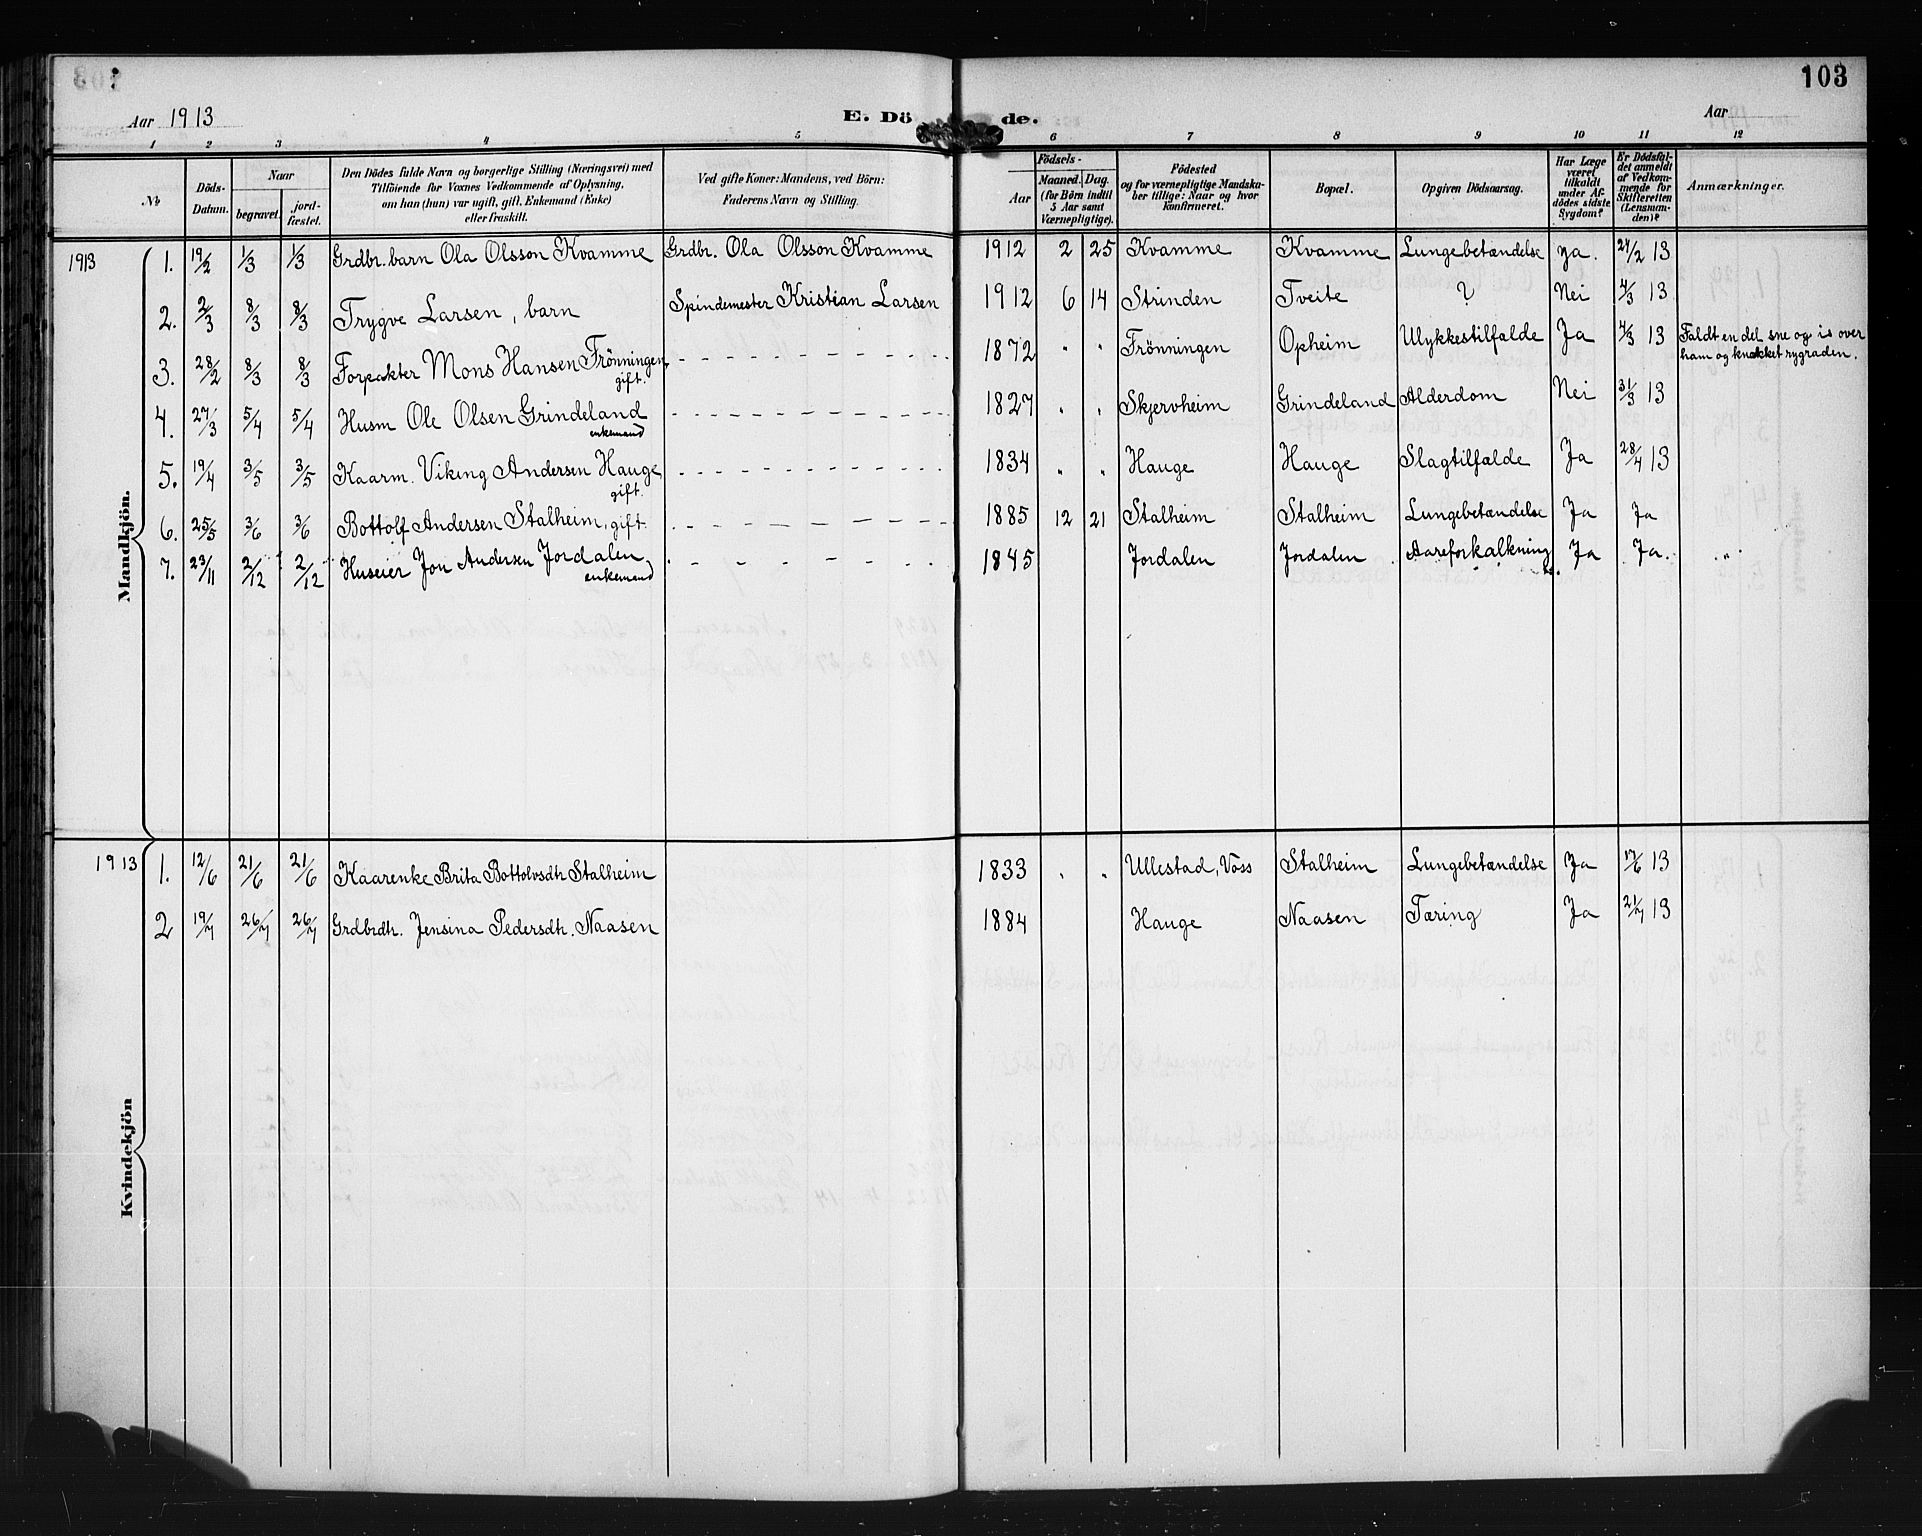 103
Aar 1913
E. Dö de.
Aar
1 2 3 4 5 6 7 8 9 10 11 12
No
Döds-Datum.
Naar
begravet.
jord-fæstet.
Den Dödes fulde Navn og borgerlige Stilling (Næringsvei) med
Tilföiende for Voxnes Vedkommende af Oplysning,
om han (hun) var ugift, gift, Enkemand (Enke)
eller fraskilt.
Ved gifte Koner: Mandens, ved Börn:
Faderens Navn og Stilling.
Födsels-
Aar
Maaned. Dag.
(for Börn indtil
5 Aar samt
Værnepligtige).
Födested
og for værnepligtige Mandska-
ber tillige: Naar og hvor
konfirmeret.
Bopæl.
Opgiven Dödsaarsag.
Har Læge
været
tilkaldt
under Af-
dödes sidste
Sygdom?
Er Dödsfal-
det anmeldt
af Vedkom-
mende for
Skifteretten
(Lensman-
den)?
Anmærkninger.
Mandkjön.
1913 1. 19/2 1/3 1/3 Grdbr. barn Ola Olsson Kvamme Grdbr. Ola Olsson Kvamme 1912 2 25 Kvamme Kvamme Lungebetændelse Ja. 24/2 13
2. 2/3 8/3 8/3 Trygve Larsen, barn Spindemester Kristian Larsen 1912 6 14 Strinden Tveite ? Nei 4/3 13
3. 28/2 8/3 8/3 Forpakter Mons Hansen Frönningen, gift. 1872 " " Frönningen Opheim Ulykkestilfalde Ja 4/3 13 Faldt en del sne og is over
ham og knækket rygraden.
4. 27/3 5/4 5/4 Husm Ole Olsen Grindeland enkemand 1827 " " Skjervheim Grindeland Alderdom Nei 31/3 13
5. 19/4 3/5 3/5 Kaarm. Viking Andersen Hauge gift. 1834 " " Hauge Hauge Slagtilfalde Ja 28/4 13
6. 25/5 3/6 3/6 Bottolf Andersen Stalheim, gift. 1885 12 21 Stalheim Stalheim Lungebetændelse Ja Ja
7. 23/11 2/12 2/12 Huseier Jon Andersen Jordalen enkemand 1845 Jordalen Jordalen Aareforkalkning Ja Ja. "
Kvindekjön
1913 1. 12/6 21/6 21/6 Kaarenke Brita Bottolvsdtr Stalheim 1833 " " Ullestad, Voss Stalheim Lungebetændelse Ja 17/6 13
2 19/7 26/7 26/7 Grdbrdtr. Jensina Pedersdtr. Naasen 1884 Hauge Naasen Tæring Ja 21/7 13